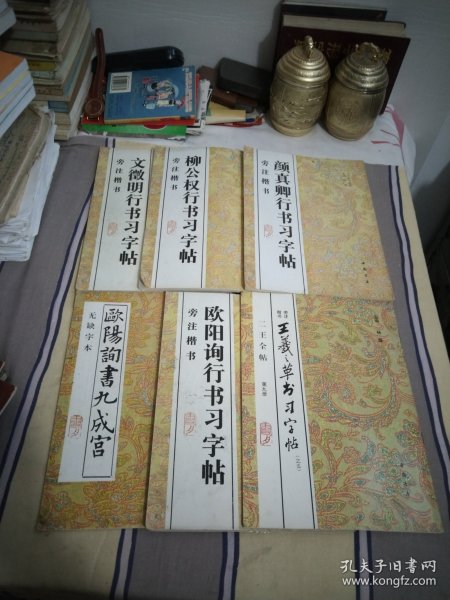 文徵明行书习字帖
旁注楷书
柳公权行书习字帖
旁注楷书
颜真卿行书习字帖
旁注楷书
歐陽詢書九成宫
无缺字本
欧阳询行书习字帖
旁注楷书
王羲之草书习字帖
二王全帖
孔夫子旧书网
www.kongfz.com